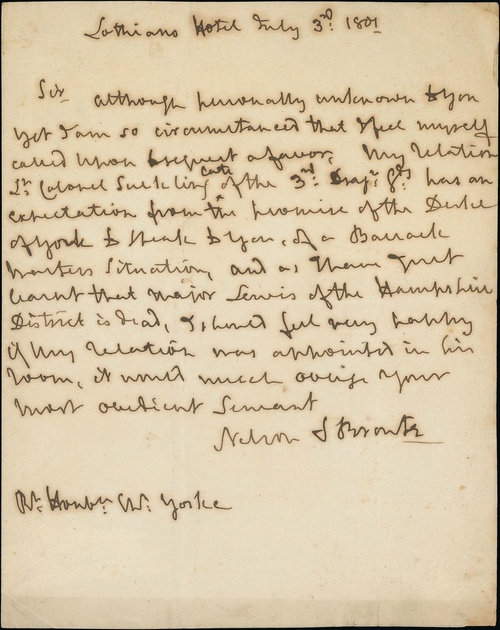 Lothians Hotel July 3rd: 1801
Sir
although personally unknown to you
yet I am so circumstanced that I feel myself
called upon to request a favor, My Relation
Lt: Colonel Suckling late of the 3rd: Drag: Gds has an
expectation from the promise of the Duke
of York to speak to you, of a Barrack
Masters Situation, and as I have just
learnt that Major Lewis of the Hampshire
District is dead, I should feel very happy
if My Relation was appointed in his
room, it would much oblige your
most obedient Servant
Nelson & Bronte
Rt: Honble: Yorke